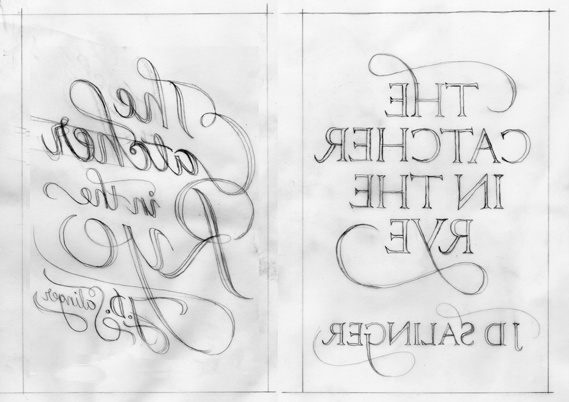 The
Catcher
in the
Rye
J.D. Salinger
THE
CATCHER
IN THE
RYE
JD SALINGER